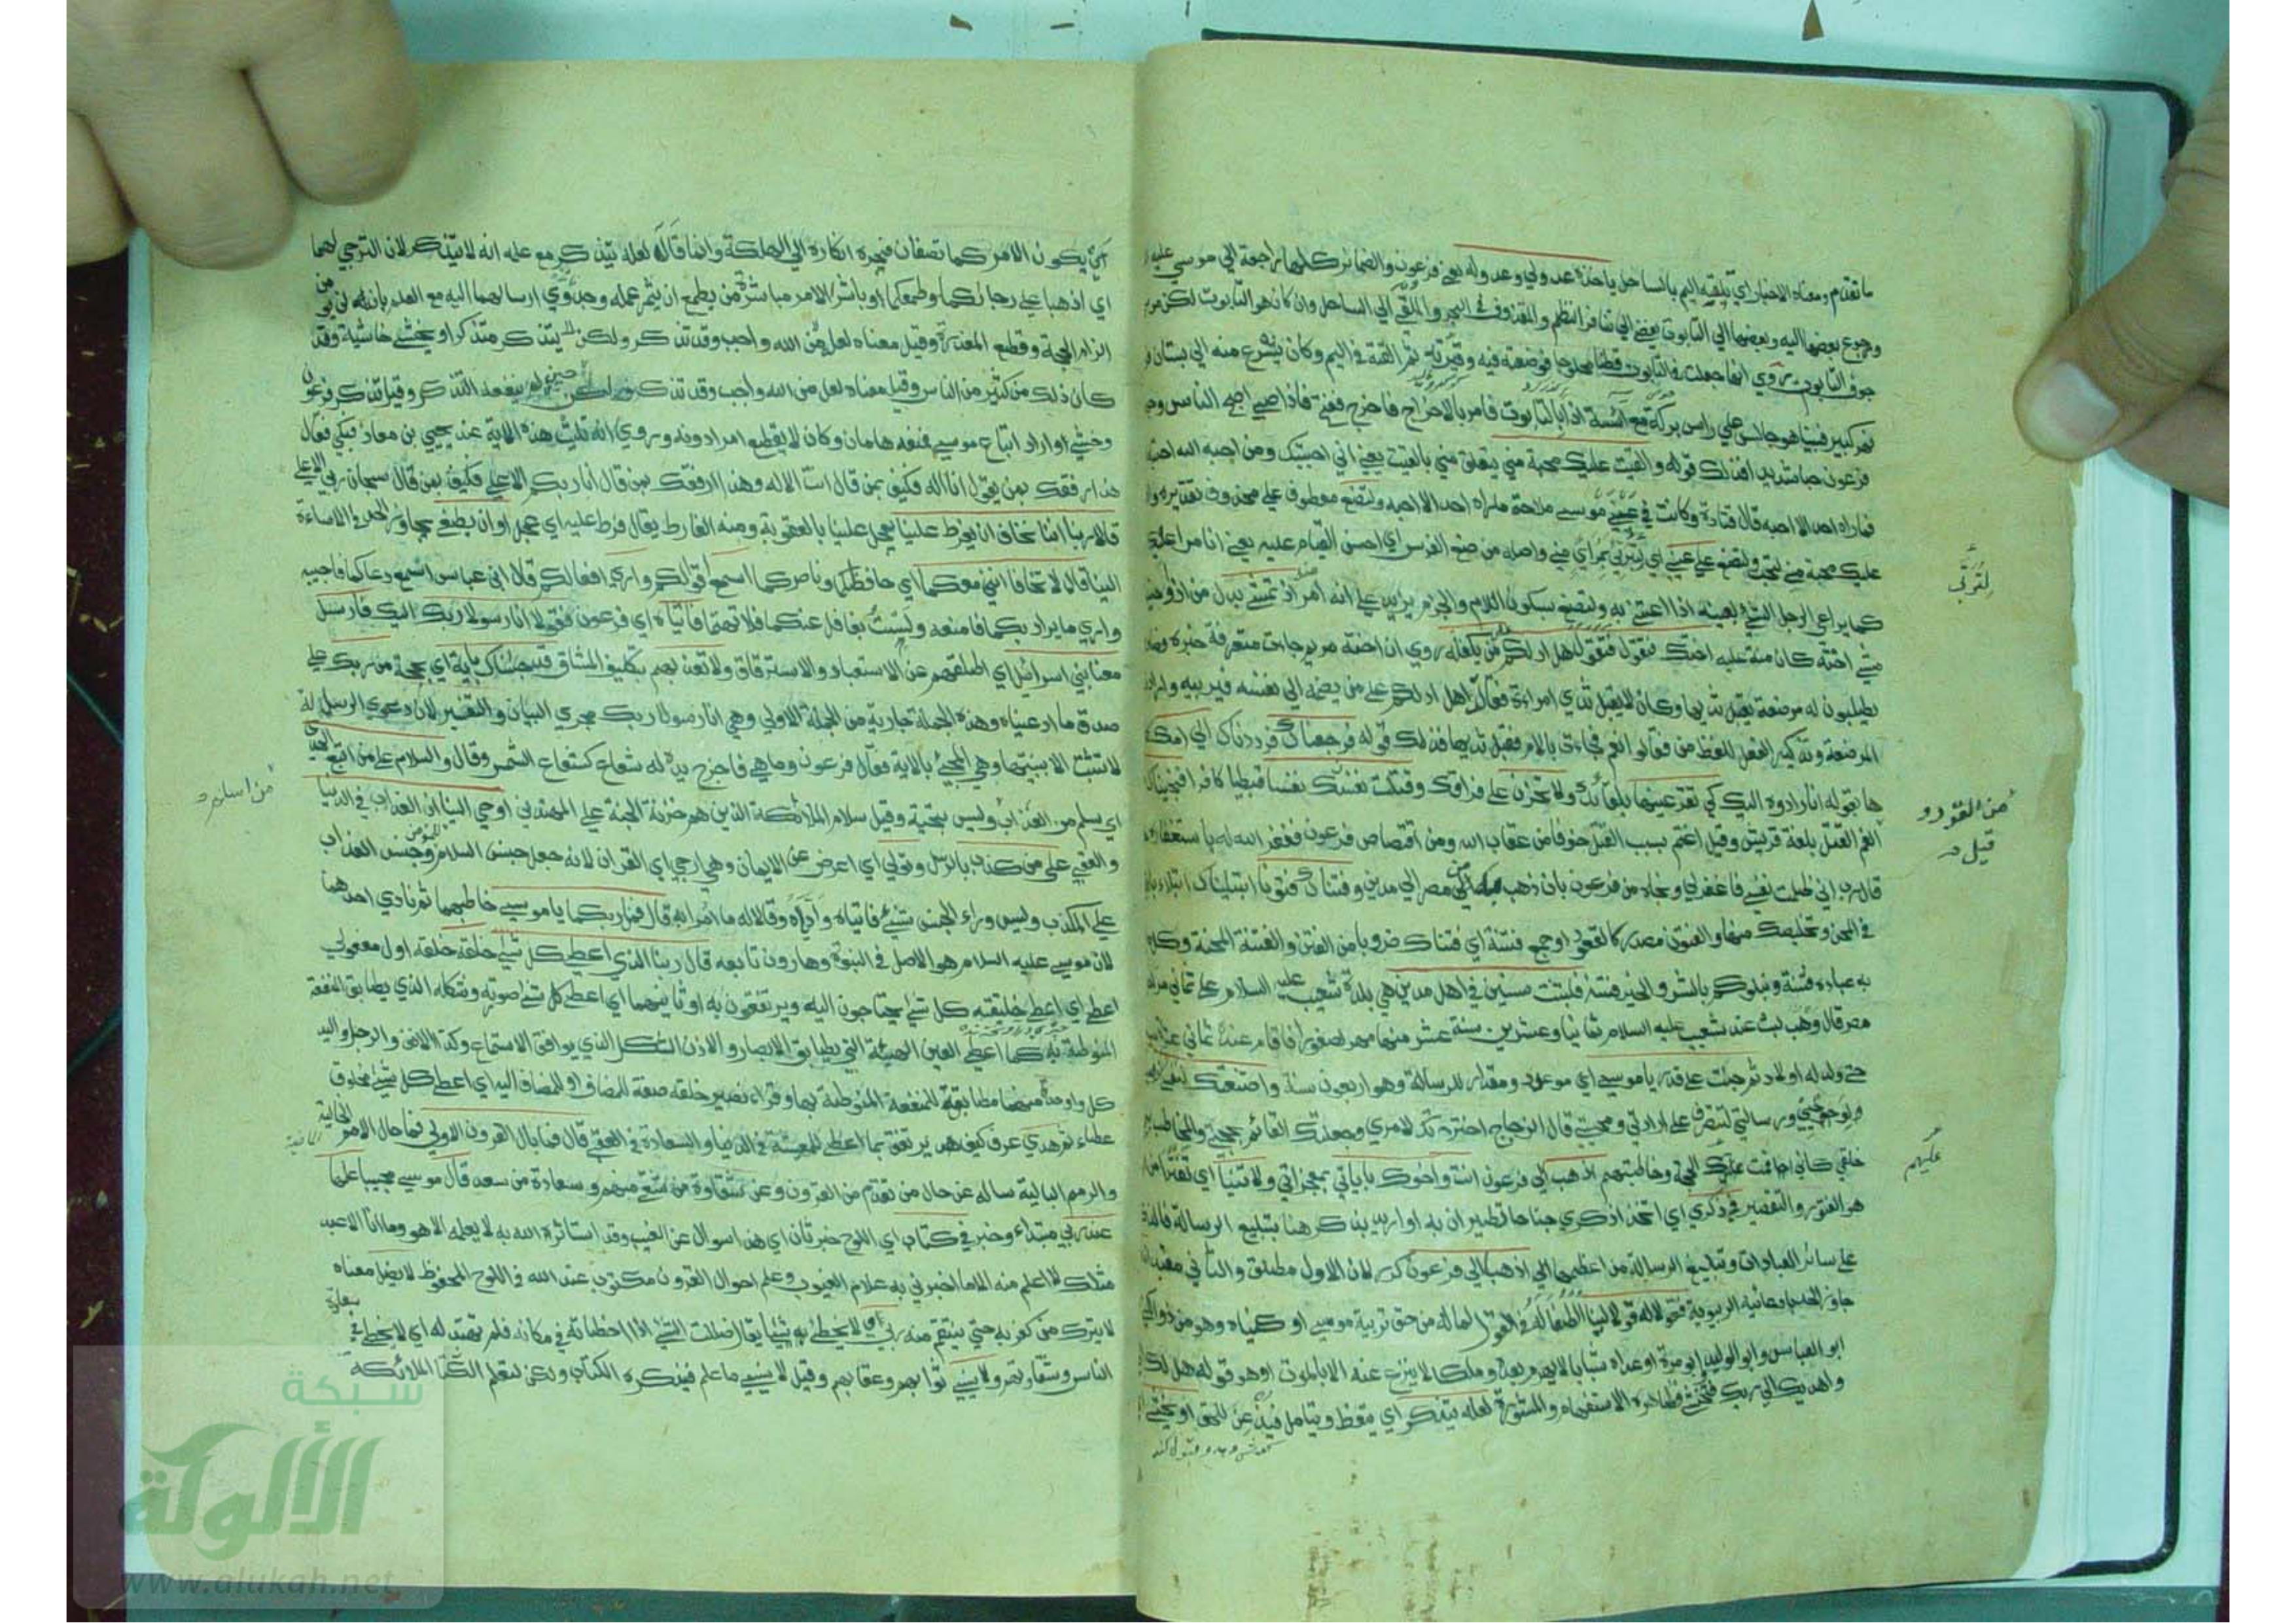 ما تقدم ومعناه الاخبار اي يلقيه اليم بالساحل ياخذه عدو لي وعدو له يعني فرعون والضمائر كلها راجعة الي موسي عليه
ورجوع بعضها اليه وبعضها الي التابوت يفضي الي تنافر النظم والمقذوف في البحر والملقي الي الساحل وان كان هو التابوت لكن موسي
جوف التابوت روي انها جعلت في التابوت قطنا محلوجا فوضعته فيه وقيرته ثم القته في اليم وكان يشرع منه الي بستان
نهر كبير فبينا هو جالس علي راس بركة مع آسية اذا بالتابوت فامر بالاخراج فاخرج ففتح فاذا صبي اصبح الناس وجها
فرعون حبا شديدا فذلك قوله والقيت عليك محبة مني يتعلق مني بالقيت يعني اني احببتك ومن احبه الله احبته
فما راه احد الا احبه قال قتادة وكانت في عيني موسي ملاحة ما راه احد الا احبه ولتصنع معطوف علي محذوف تقديره
عليك محبة مني لتحب ولتصنع علي عيني اي لتربي بمرأي مني واصله من صنع الفرس اي احسن القيام عليه يعني انا مراعيك
كما يراعي الرجل الشئ بعينه اذا اعتني به ولتصنع بسكون اللام والجزم يزيد علي انه امر اذ تمشي بدل من اذ اوحينا
مشي اخته كان منة عليه اختك فتقول هل ادلكم علي من يكفله روي ان اخته مريم جاءت متعرفة خبره
يطلبون له مرضعة يقبل ثديها وكان لا يقبل ثدي امراءة فقالت هل ادلكم علي من يضمه الي نفسه فيربيه
المرضعة وتذكير الفعل للفظ من فقالو انعم فجاءت بالام فقبل ثديها فذلك قوله فرجعناك فرددناك الي امك
ها بقوله انا رادوه اليك كي تقر عينها بلقائك ولا تحزن علي فراقك وقتلت نفسك نفسا قبطيا كافرا فنجيناك
الغم القتل بلغة قريش وقيل اغتم بسبب القتل خوفا من عقاب الله ومن اقتصاص فرعون فغفر الله له باستغفاره
قال رب اني ظلمت نفسي فاغفرلي ونجاه من فرعون بان ذهب من مصر الي مدين وفتناك فتونا ابتليناك ابتلاء
في المحن وتخليصك منها والفتون مصدر كالقعود او جمع فتنة اي فتناك ضروبا من الفتن والفتنة المحنة وكل
به عباده فتنة ونبلوكم بالشر والخير فتنة فلبثت سنين في اهل مدين هي بلدة شعيب عليه السلام علي ثماني مراحل
مصر قال وهب لبث عند شعيب عليه السلام ثمانيا وعشرين سنة عشر منها مهر لصفورا فاقام عنده ثماني عشرة
حتي ولد له اولاد ثم جئت علي قدر يا موسي اي موعد ومقدار للرسالة وهو اربعون سنة واصطنعتك لنفسي
ورسالتي لتتصرف علي ارادتي ومحبتي قال الزجاج اخترتك لامري وجعلتك القائم بحجتي والمخاطب
خلقي كاني اقمت عليك الحجة وخاطبتهم اذهب الي فرعون انت واخوك باياتي بمعجزاتي ولا تنيا اي تفترا من
هو الفتور والتقصير في ذكري اي اتخذ اذكري جناحا تطيران به او اريد بذكر هنا بتبليغ الرسالة
علي سائر العبادات وتبليغ الرسالة من اعظمها الي اذهبا الي فرعون كرر لان الاول مطلق والثاني مقيد
جاوز الحد بادعائه الربوبية فقولا له قولا لينا الطفا له في القول لما له من حق تربية موسي او كنياه وهو من ذوي الكني
ابو العباس وابو الوليد ابو مرة او عداه شبابا لا يهرم بعده وملكا لا ينزع عنه الا بالموت او هو قوله هل لك
واهديك الي ربك فتخشي فظاهره الاستفهام والمشورة لعله يتذكر اي يتعظ ويتامل فيذعن للحق او يخشي
لتربي
من القود
قيل
عليهم
ان يكون الامر كما تصفان فيجره انكاره الي الهلكة وانما قال لعله يتذكر مع علمه انه لا يتذكر لان الترجي لهما
اي اذهبا علي رجائكما وطمعكما او باشر الامر مباشرة من يطمع ان يثمر عمله وجدوي ارسالهما اليه مع العلم بانه لن يومن
الزام الحجة وقطع المعذرة وقيل معناه لعل من الله واجب وقد تذكر ولكن يتذكر متذكر او يخشي خاشية وقد
كان ذلك من كثير من الناس وقيل معناه لعل من الله واجب وقد تذكر ولكن حين لم ينفعه التذكر وقيل تذكر فرعون
وخشي او اراد اتباع موسي فمنعه هامان وكان لا يقطع امرا دونه وروي انه تليت هذه الاية عند يحيي بن معاذ فبكي فقال
هذا رفقك بمن يقول انا اله فكيف بمن قال انت الاله وهذا رفقك بمن قال انا ربكم الاعلي فكيف بمن قال سبحان ربي الاعلي
قالا ربنا اننا نخاف ان يفرط علينا يعجل علينا بالعقوبة ومنه الفارط يقال فرط عليه اي عجل او ان يطغي يجاوز الحد في الاساءة
الينا قال لا تخافا انني معكما اي حافظكما وناصركما اسمع اقوالكم واري افعالكم قال ابن عباس اسمع دعاكما فاجيبه
واري ما يراد بكما فامنعه ولست بغافل عنكما فلا تهتما فاتياه اي فرعون فقولا انا رسولا ربك اليك فارسل
معنا بني اسرائيل اي اطلقهم عن الاستعباد والاسترقاق ولا تعذبهم بتكليف المشاق قد جئناك باية اي بحجة من ربك علي
صدق ما ادعيناه وهذه الجملة جارية من الجملة الاولي وهي انا رسولا ربك مجري البيان والتفسير لان دعوي الرسالة
لا تثبت الا ببينتها وهي المجئ بالاية فقال فرعون وما هي فاخرج يده له شعاع كشعاع الشمس وقال والسلام علي من اتبع الهدي
اي يسلم من العذاب وليس بتحية وقيل سلام الملائكة الذين هم خزنة الجنة علي المهتدين اوحي الينا ان العذاب في الدنيا
والعقبي علي من كذب بالرسل وتولي اي اعرض عن الايمان وهي ارجي اي القران لانه جعل جنس السلام للمومن وجنس العذاب
علي المكذب وليس وراء الجنس شئ فاتياه وقالا له ما امرا به قال فمن ربكما يا موسي خاطبهما ثم نادي احدهما
لان موسي عليه السلام هو الاصل في النبوة وهارون تابعه قال ربنا الذي اعطي كل شئ خلقه خلقه اول مفعولي
اعطي اي اعطي خليقته كل شئ يحتاجون اليه ويرتفقون به او ثانيهما اي اعطي كل شئ صورته وشكله الذي يطابق المنفعة
المنوطة به كما اعطي العين الهيئة التي يطابق الابصار والاذن الشكل الذي يوافق الاستماع وكذا الانف والرجل واليد
كل واحدة منهما مطابقة للمنفعة المنوطة بها وقراء نصير خلقه صفة للمضاف او للمضاف اليه اي اعطي كل شئ مخلوق
عطاء ثم هدي عرف كيف هو يرتفق بما اعطي للمعيشة في الدنيا والسعادة في العقبي قال فما بال القرون الاولي فما حال الامم الخالية
والرمم البالية ساله عن حال من تقدم من القرون وعن شقاوة من شقي منهم وسعادة من سعد قال موسي مجيبا علمها
عند ربي مبتداء وخبر في كتاب اي اللوح خبر ثان اي هذا سوال عن الغيب وقد استاثره الله به لا يعلمه الا هو وما انا الا عبد
مثلك لا اعلم منه الا ما اخبرني به علام الغيوب وعلم احوال القرون مكتوب عند الله في اللوح المحفوظ لا يضل معناه
لا يترك من كفر به حتي ينتقم منه ربي اي لا يخطئ به شيئا يقال ضللت الشئ اذا اخطاته في مكانه فلم تهتد له اي لا يخطئ في سعادة
الناس وشقاوتهم ولا ينسي ثوابهم وعقابهم وقيل لا ينسي ما علم فيذكره الكتاب ولكن ليعلم الملائكة
من اسلم
شبكة
الألوكة
www.alukah.net